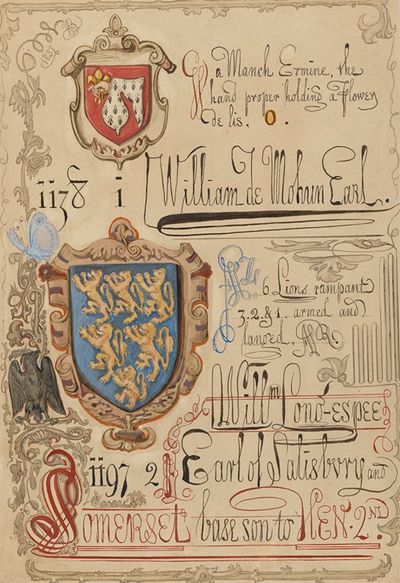 G a Manch Ermine, the
hand proper holding a Flower
de lis, O.
1138 1 William de Mohun Earl.
Az 6 Lions rampant
3. 2. & 1. armed and
langed,
Will^m Lonġ-espee
1197 2 Earl of Salisbury and
SOMERSET base son to HEN. 2^ND